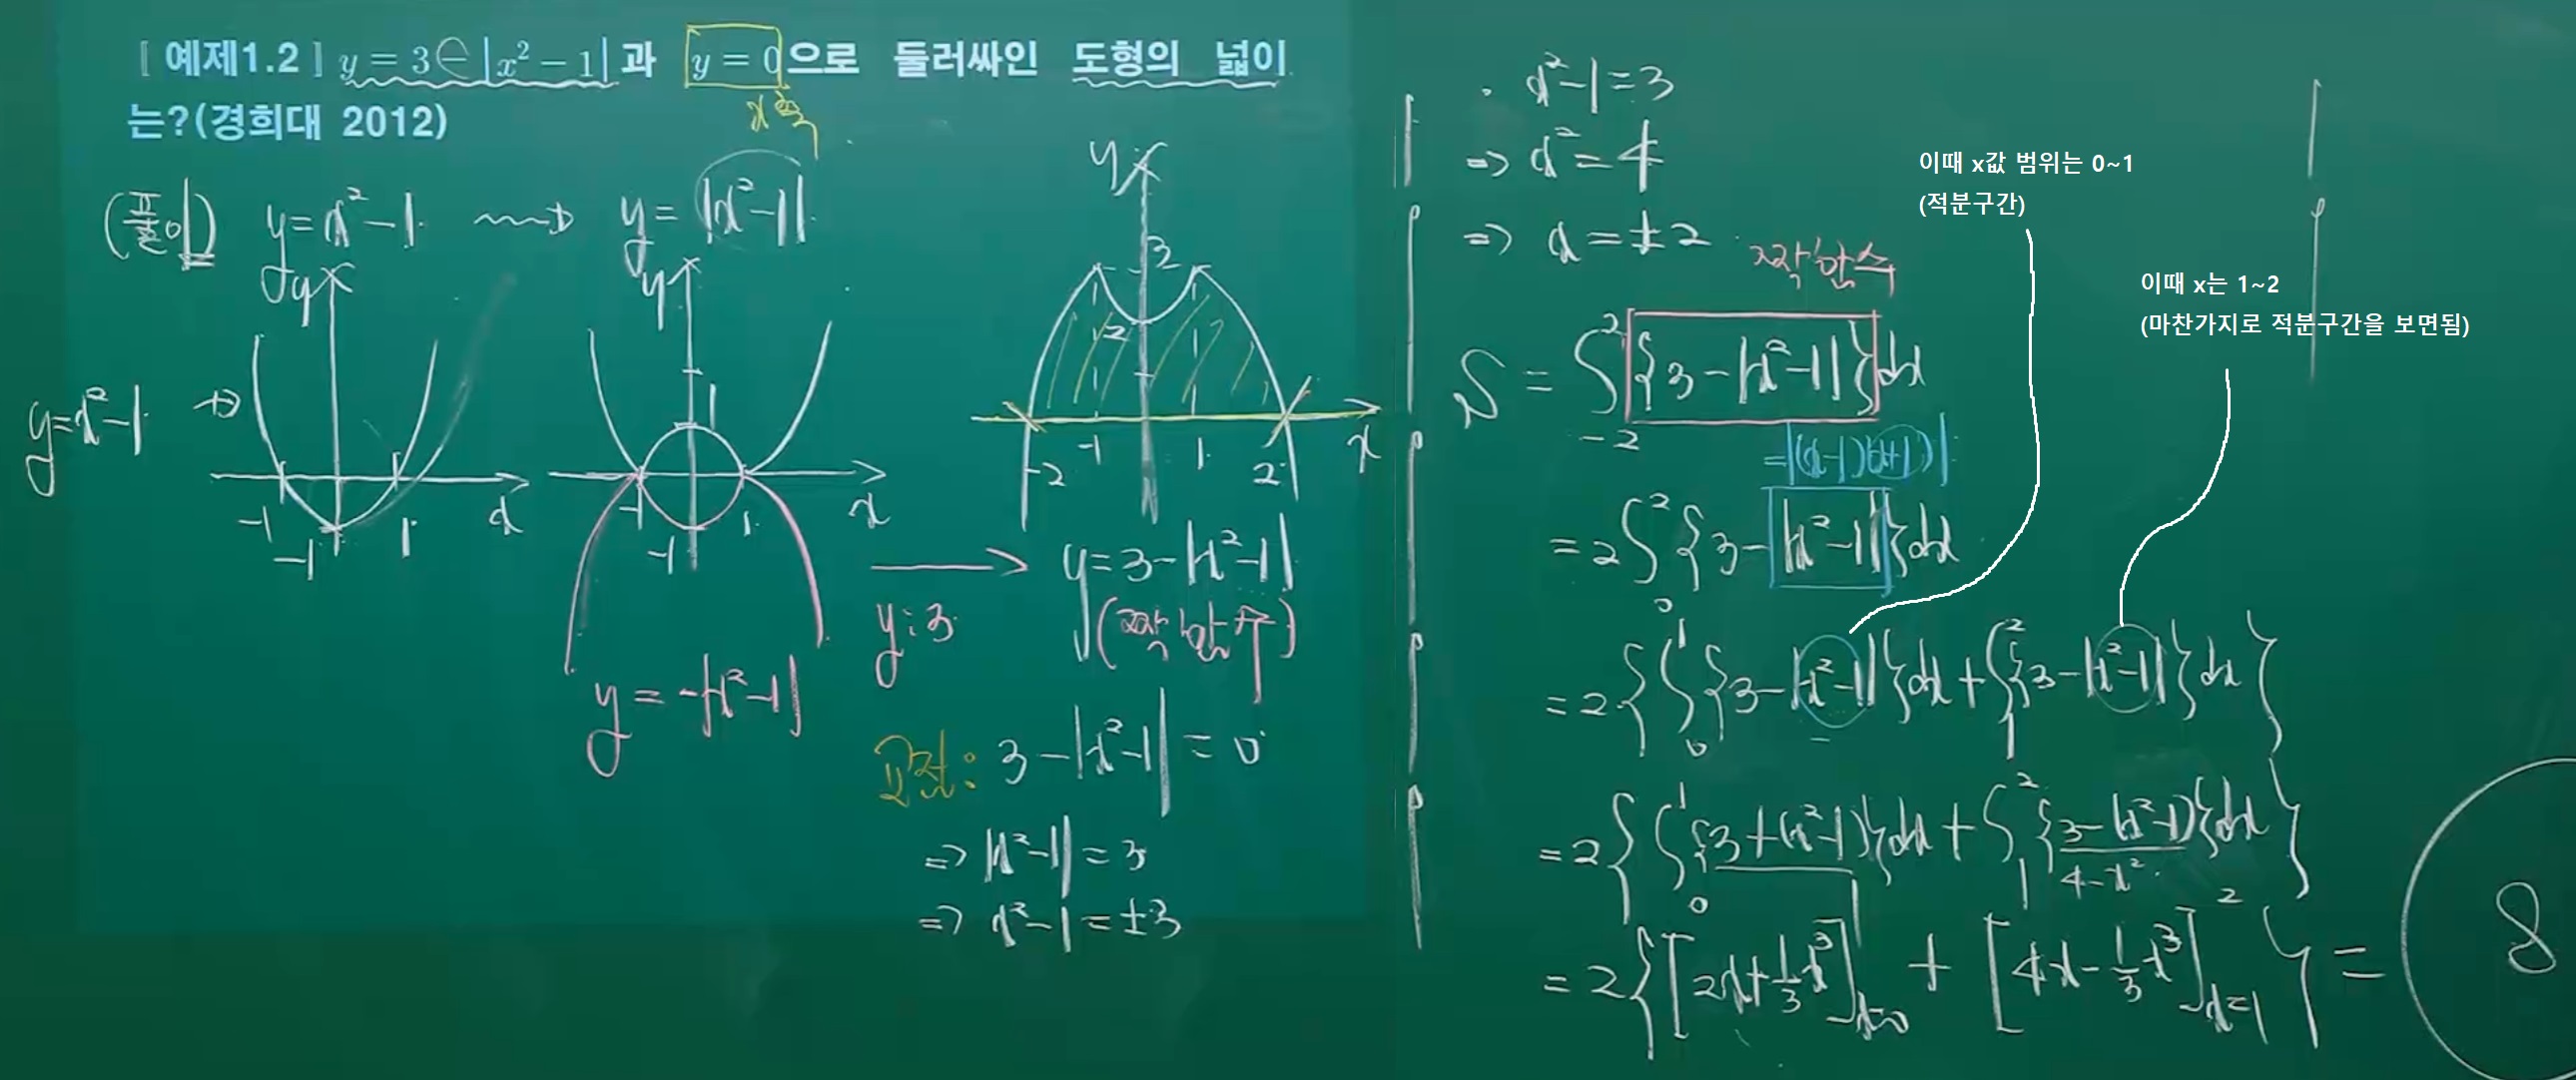 [ 예제1.2 ] y = 3 - |x² - 1| 과 y = 0 으로 둘러싸인 도형의 넓이
는?(경희대 2012)
x축
(풀이) y = x² - 1 → y = |x² - 1|
y
y
-1
1
x
-1
y = x² - 1 →
1
-1
1
x
-1
y = -|x² - 1|
y : 3
y
3
2
-2
-1
1
2
x
y = 3 - |x² - 1|
(짝함수)
교점: 3 - |x² - 1| = 0
⇒ |x² - 1| = 3
⇒ x² - 1 = ±3
· x² - 1 = 3
⇒ x² = 4
⇒ x = ±2
짝함수
S = ∫₋₂² {3 - |x² - 1|} dx
= |(x-1)(x+1)|
= 2∫₀² {3 - |x² - 1|} dx
= 2{∫₀¹ {3 - |x² - 1|} dx + ∫₁² {3 - |x² - 1|} dx}
= 2{∫₀¹ {3 + (x² - 1)} dx + ∫₁² {3 - (x² - 1)} dx}
4 - x²
= 2{[2x + 1/3 x³]¹ₓ₌₀ + [4x - 1/3 x³]²ₓ₌₁} = 8
이때 x값 범위는 0~1
(적분구간)
이때 x는 1~2
(마찬가지로 적분구간을 보면됨)